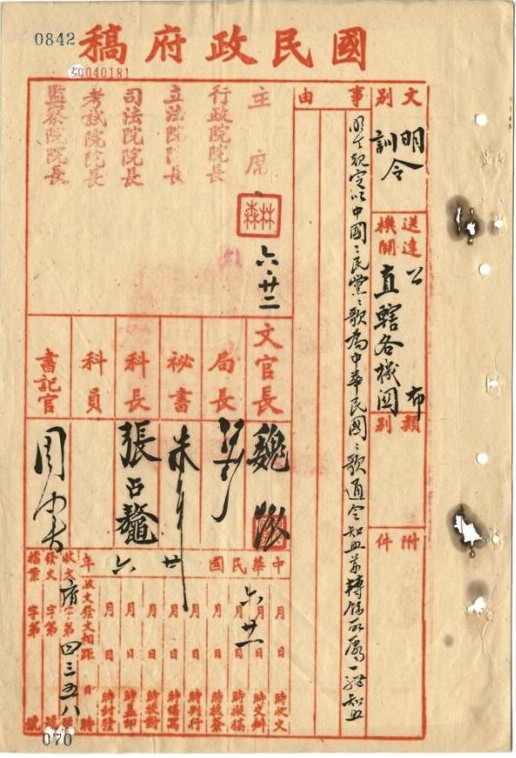 0842
國民政府稿
50040181
文別
明令
訓令
送達機關
公布
直轄各機關
類別
附件
事由
明令規定以中國國民黨黨歌為中華民國國歌通令知照並轉飭所屬一體知照
主席
林森
六、廿二
行政院院長
立法院院長
司法院院長
考試院院長
監察院院長
文官長
魏懷
局長
祕書
朱
科長
張占鰲
科員
書記官
周
中華民國
六廿
六廿一
月 日 時收文
月 日 時交辦
月 日 時擬稿
月 日 時核簽
月 日 時判行
月 日 時繕寫
月 日 時校對
月 日 時蓋印
月 日 時封發
年收文發文相距 日 時
收文府字第四三五八號
發文 字第 號
檔案 字第 號
070